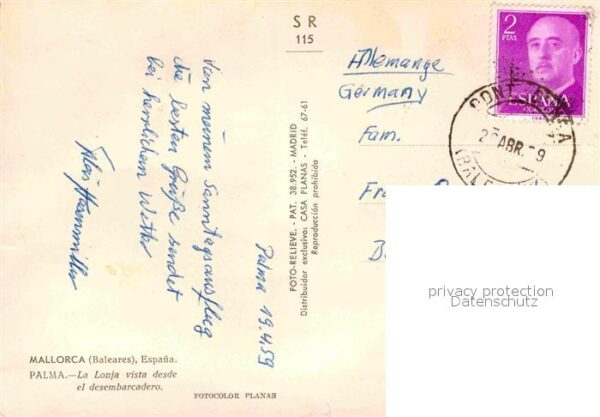 S R
115
Von meinem Sonntagsausflug
die besten Grüße sendet
bei herrlichem Wetter
Palma 19.4.59
FOTO-RELIEVE. - PAT. 38.952. - MADRID
Distribuidor exclusivo: CASA PLANAS - Teléf. 67-61
Reproducción prohibida
MALLORCA (Baleares), España.
PALMA.—La Lonja vista desde
el desembarcadero.
FOTOCOLOR PLANAS
Allemange
Germany
Fam.
2
PTAS
ESPAÑA
CORREOS
ABR.
privacy protection
Datenschutz